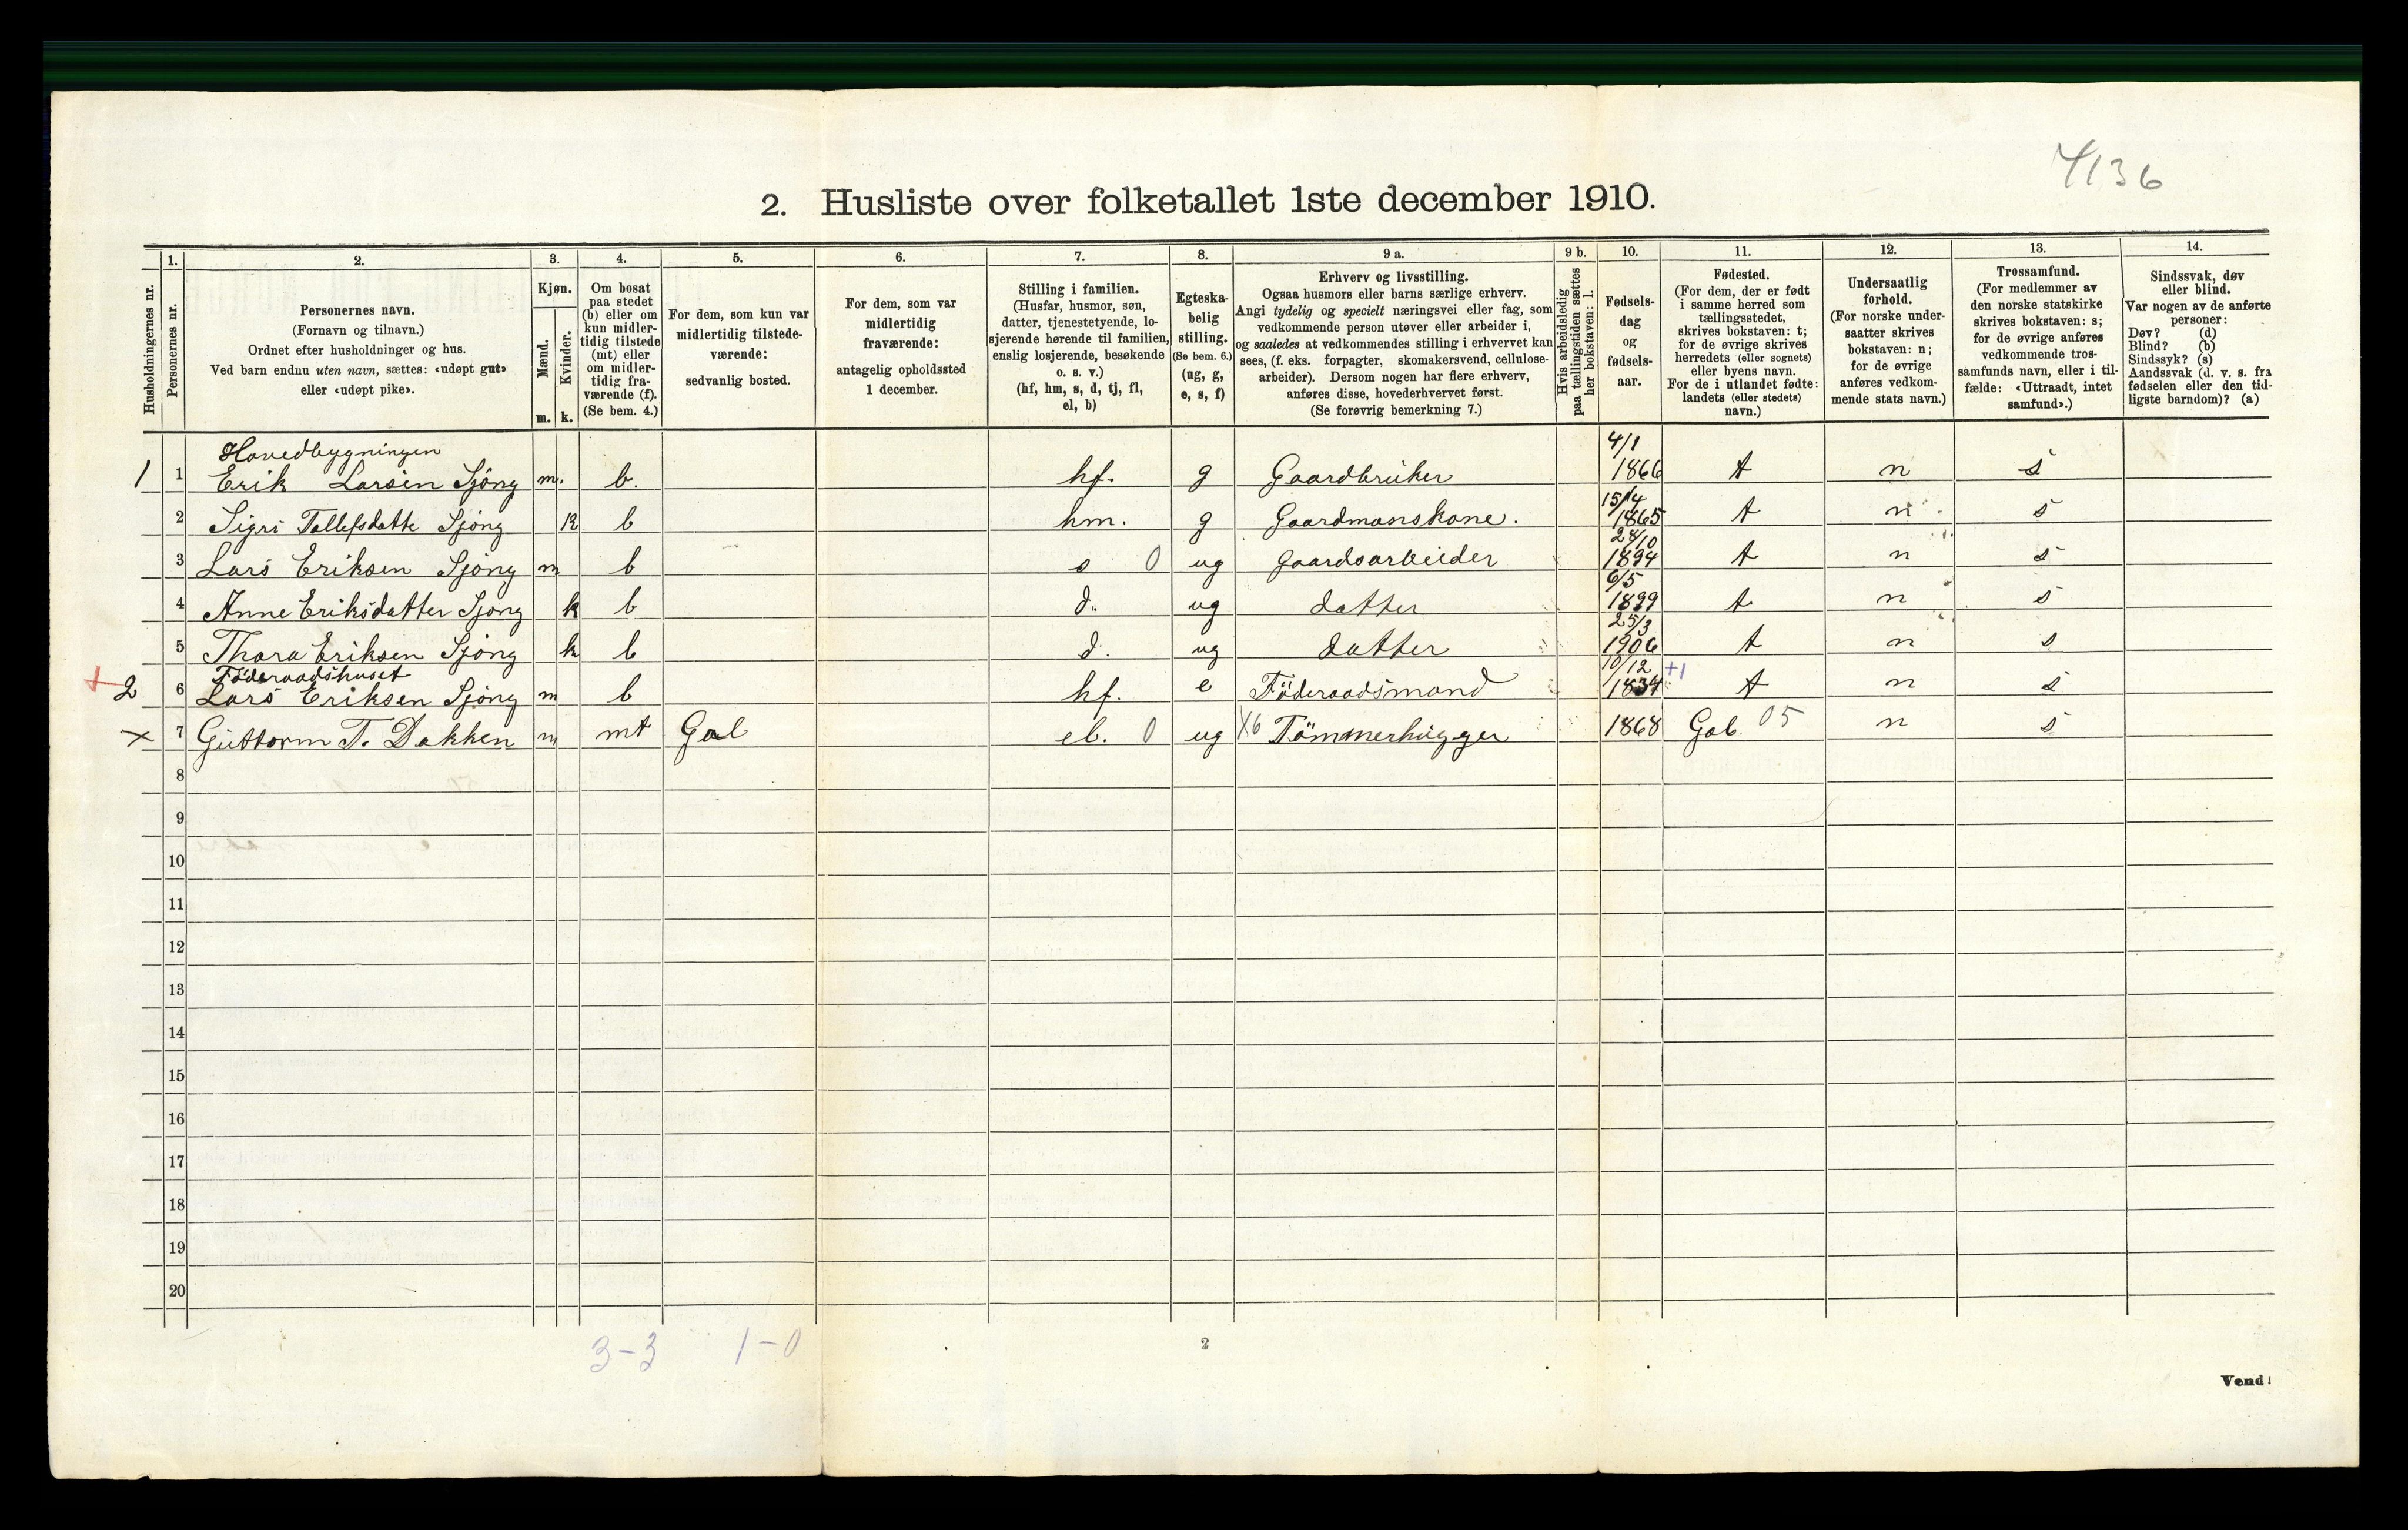 4136
2. Husliste over folketallet 1ste december 1910.
Husholdningernes nr.
1.
Personernes nr.
2.
Personernes navn.
(Fornavn og tilnavn.)
Ordnet efter husholdninger og hus.
Ved barn endnu uten navn, sættes: «udøpt gut»
eller «udøpt pike».
3.
Kjøn.
Mænd.
m.
Kvinder.
k.
4.
Om bosat
paa stedet
(b) eller om
kun midler-
tidig tilstede
(mt) eller
om midler-
tidig fra-
værende (f).
(Se bem. 4.)
5.
For dem, som kun var
midlertidig tilstede-
værende:
sedvanlig bosted.
6.
For dem, som var
midlertidig
fraværende:
antagelig opholdssted
1 december.
7.
Stilling i familien.
(Husfar, husmor, søn,
datter, tjenestetyende, lo-
sjerende hørende til familien,
enslig losjerende, besøkende
o. s. v.)
(hf, hm, s, d, tj, fl,
el, b)
8.
Egteska-
belig
stilling.
(Se bem. 6.)
(ug, g,
e, s, f)
9 a.
Erhverv og livsstilling.
Ogsaa husmors eller barns særlige erhverv.
Angi tydelig og specielt næringsvei eller fag, som
vedkommende person utøver eller arbeider i,
og saaledes at vedkommendes stilling i erhvervet kan
sees, (f. eks. forpagter, skomakersvend, cellulose-
arbeider). Dersom nogen har flere erhverv,
anføres disse, hovederhvervet først.
(Se forøvrig bemerkning 7.)
9 b.
Hvis arbeidsledig
paa tællingstiden sættes
her bokstaven: l.
10.
Fødsels-
dag
og
fødsels-
aar.
11.
Fødested.
(For dem, der er født
i samme herred som
tællingsstedet,
skrives bokstaven: t;
for de øvrige skrives
herredets (eller sognets)
eller byens navn.
For de i utlandet fødte:
landets (eller stedets)
navn.)
12.
Undersaatlig
forhold.
(For norske under-
saatter skrives
bokstaven: n;
for de øvrige
anføres vedkom-
mende stats navn.)
13.
Trossamfund.
(For medlemmer av
den norske statskirke
skrives bokstaven: s;
for de øvrige anføres
vedkommende tros-
samfunds navn, eller i til-
fælde: «Uttraadt, intet
samfund».)
14.
Sindssvak, døv
eller blind.
Var nogen av de anførte
personer:
Døv? (d)
Blind? (b)
Sindssyk? (s)
Aandssvak (d. v. s. fra
fødselen eller den tid-
ligste barndom)? (a)
Hovedbygningen 4/1
1 1 Erik Larsen Sjöng m. b. hf. g Gaardbruker 1866 t n s
15/4
2 Sigri Tollefsdatte Sjöng k b hm. g Gaardmanskone. 1865 t n s
24/10
3 Lars Eriksen Sjöng m b s 0 ug Gaardsarbeider 1894 t n s
6/5
4 Anne Eriksdatter Sjong k b d. ug datter 1899 t n s
25/3
5 Thora Eriksen Sjöng k b d. ug datter 1906 t n s
Föderaadshuset 10/12 +1
+ 2 6 Lars Eriksen Sjöng m b hf. e Föderaadsmand 1834 t n s
x 7 Guttorm T. Dokken m mt Gol el. 0 ug X6 Tömmerhugger 1868 Gol. 05 n s
8
9
10
11
12
13
14
15
16
17
18
19
20
3-3 1-0
2
Vend!